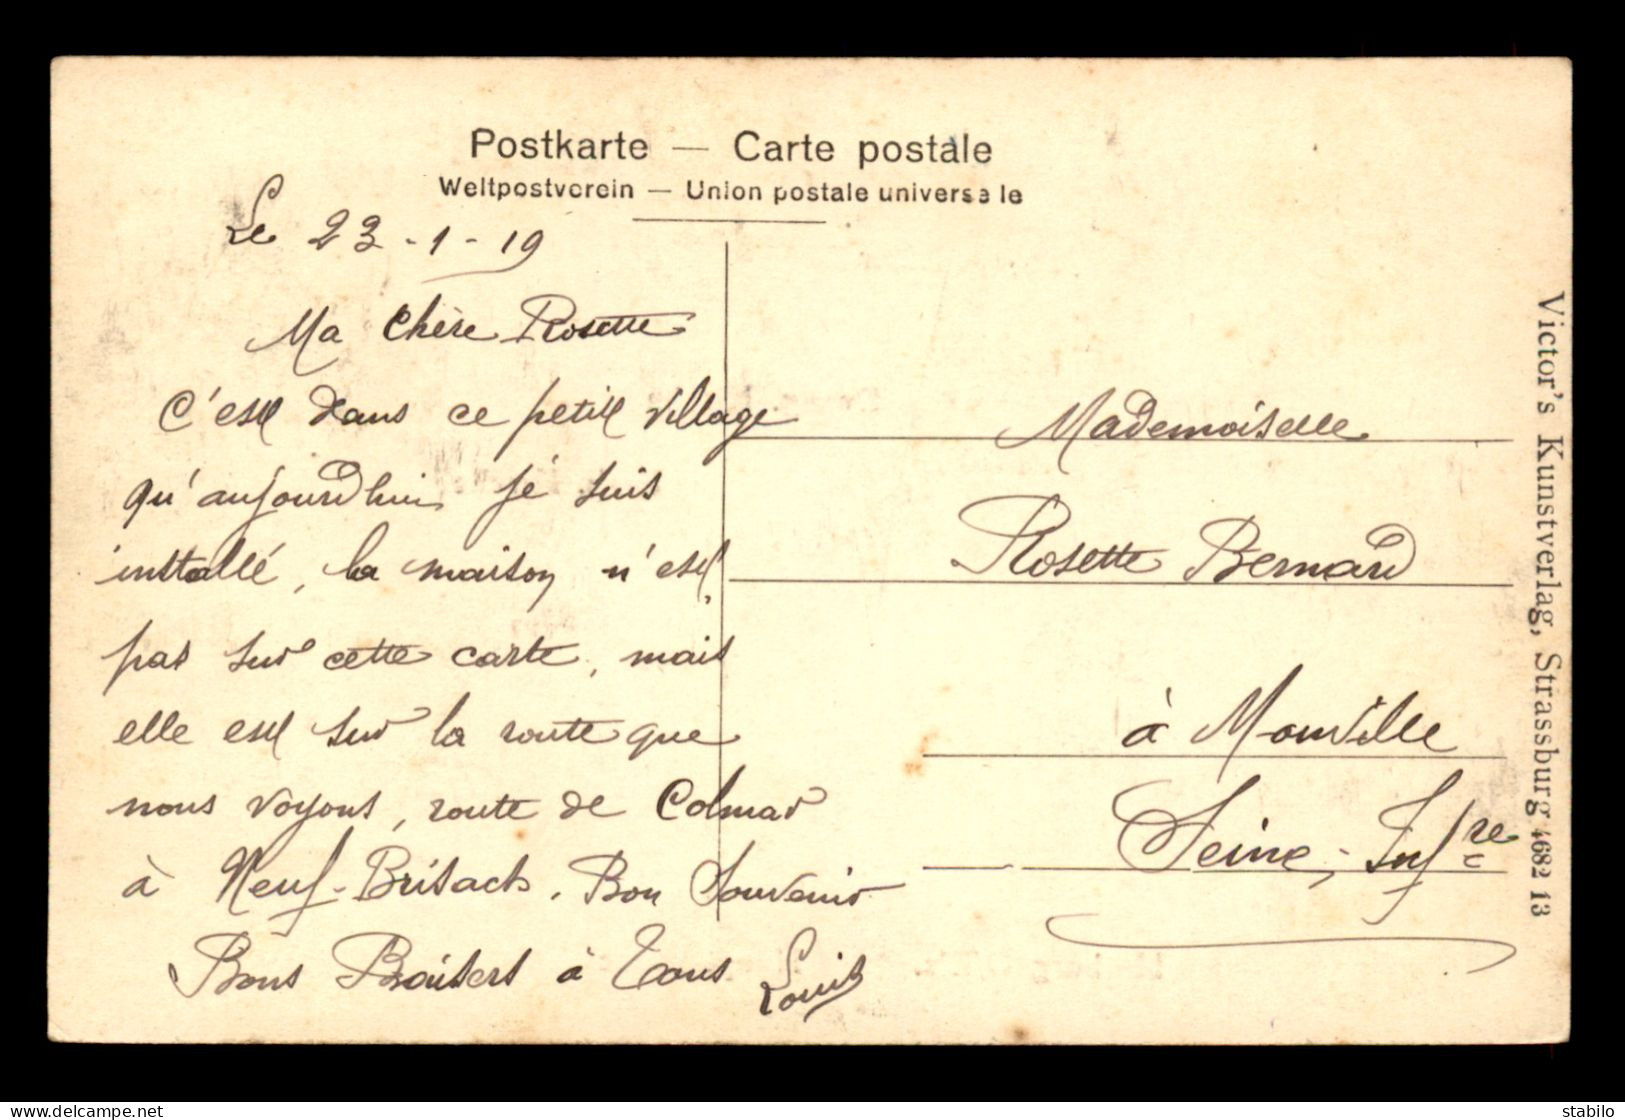 Postkarte — Carte postale
Weltpostverein — Union postale universelle
Le 23-1-19
Ma Chère Rosette
C'est dans ce petit village
qu'aujourd'hui je suis
installé, la maison n'est
pas sur cette carte, mais
elle est sur la route que
nous voyons, route de Colmar
à Neuf-Brisach. Bon Souvenir
Bons Baisers à Tous Louis
Mademoiselle
Rosette Bernard
à Monville
Seine-Infre
Victor's Kunstverlag, Strassburg 4682 13
stabilo